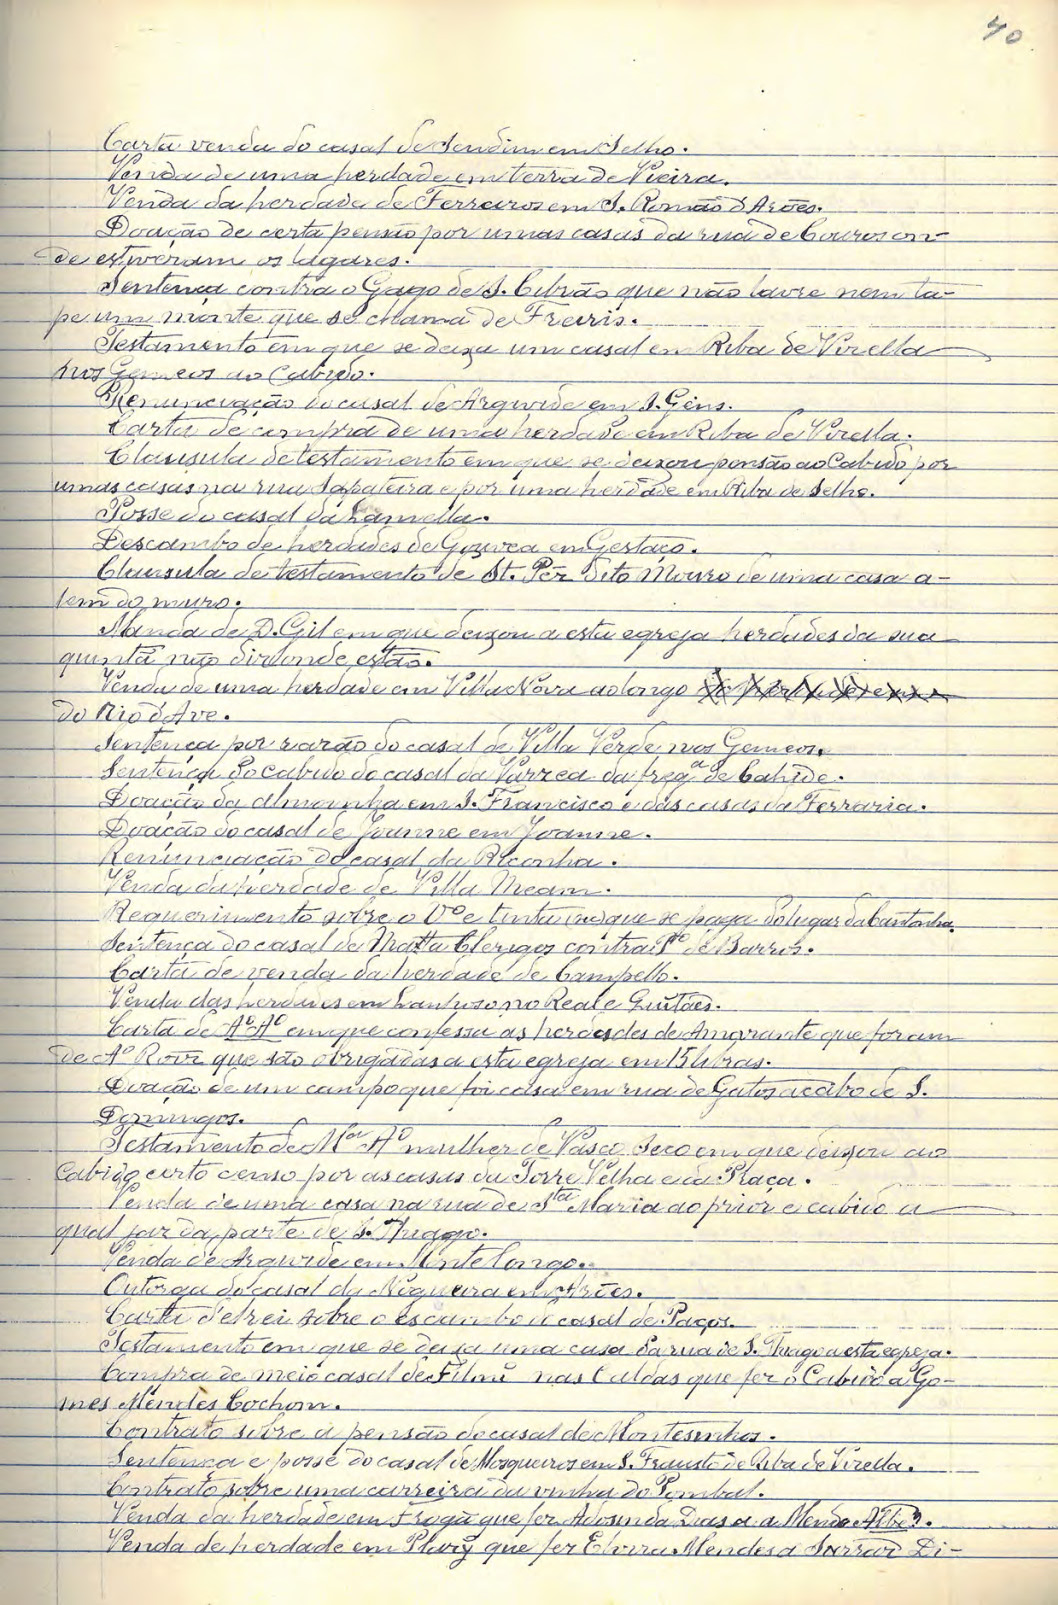 40
Carta venda do casal de Sendim em Selho.
Venda de uma herdade em terra de Vieira.
Venda da herdade de Ferreiros em S. Romão d'Arões.
Doação de certa pensão por umas casas da rua de Couros on-
de estiveram os lagares.
Sentença contra o Gago de S. Cibrão que não lavre nem ta-
pe um monte que se chama de Freiris.
Testamento em que se deixa um casal em Riba de Virella
nos Gemeos ao Cabido.
Renunciação do casal de Arguide em S. Gens.
Carta de compra de uma herdade em Riba de Virella.
Clausula de testamento em que se deixou pensão ao Cabido por
umas casas na rua Sapateira e por uma herdade em Riba de Selho.
Posse do casal da Lamella.
Descambo de herdades de Gouvea em Gestaço.
Clausula de testamento de St. Per dito Mouro de uma casa a-
lem do muro.
Manda de D. Gil em que deixou a esta egreja herdades da sua
quintã não diz onde estão.
Venda de uma herdade em Villa Nova ao longo
do Rio d'Ave.
Sentença por razão do casal de Villa Verde nos Gemeos.
Sentença do Cabido do casal da Varzea da fregª de Cahide.
Doação da almoinha em S. Francisco e das casas da Ferraria.
Doação do casal de Joanne em Joanne.
Renunciação do casal da Riconha.
Venda da herdade de Villa Meam.
Requerimento sobre o Vº e tinta (sic) que se paga do lugar da Cantonha.
Sentença do casal de Matta Clerigos contra Pº de Barros.
Carta de venda da herdade de Campello.
Venda das herdades em Lanhoso no Real e Guitães.
Carta de Aº Aº em que confessa as herdades de Amarante que foram
de Aº Roiz que são obrigadas a esta egreja em 15 libras.
Doação de um campo que foi casa em rua de Gatos acabo de S.
Domingos.
Testamento de Mor Aº mulher de Vasco Seco em que deixou ao
Cabido certo censo por as casas da Torre Velha e da Praça.
Venda de uma casa na rua de Sta Maria ao prior e cabido a
qual jaz da parte de S. Thiago.
Venda de Arguide em Monte Longo.
Outorga do casal da Nogueira em Arões.
Carta d'elrei sobre o escambo do casal de Paços.
Testamento em que se deixa uma casa da rua de S. Thiago a esta egreja.
Compra de meio casal de nas Caldas que fez o Cabido a Go-
mes Mendes Cochom.
Contrato sobre a pensão do casal de Montesinhos.
Sentença e posse do casal de Mosqueiros em S. Frausto de Riba de Virella.
Contrato sobre uma carreira da vinha do Pombal.
Venda da herdade em que fez Adosinda Dias a a Mendo
Venda de herdade em que fez Elvira Mendes a Di-